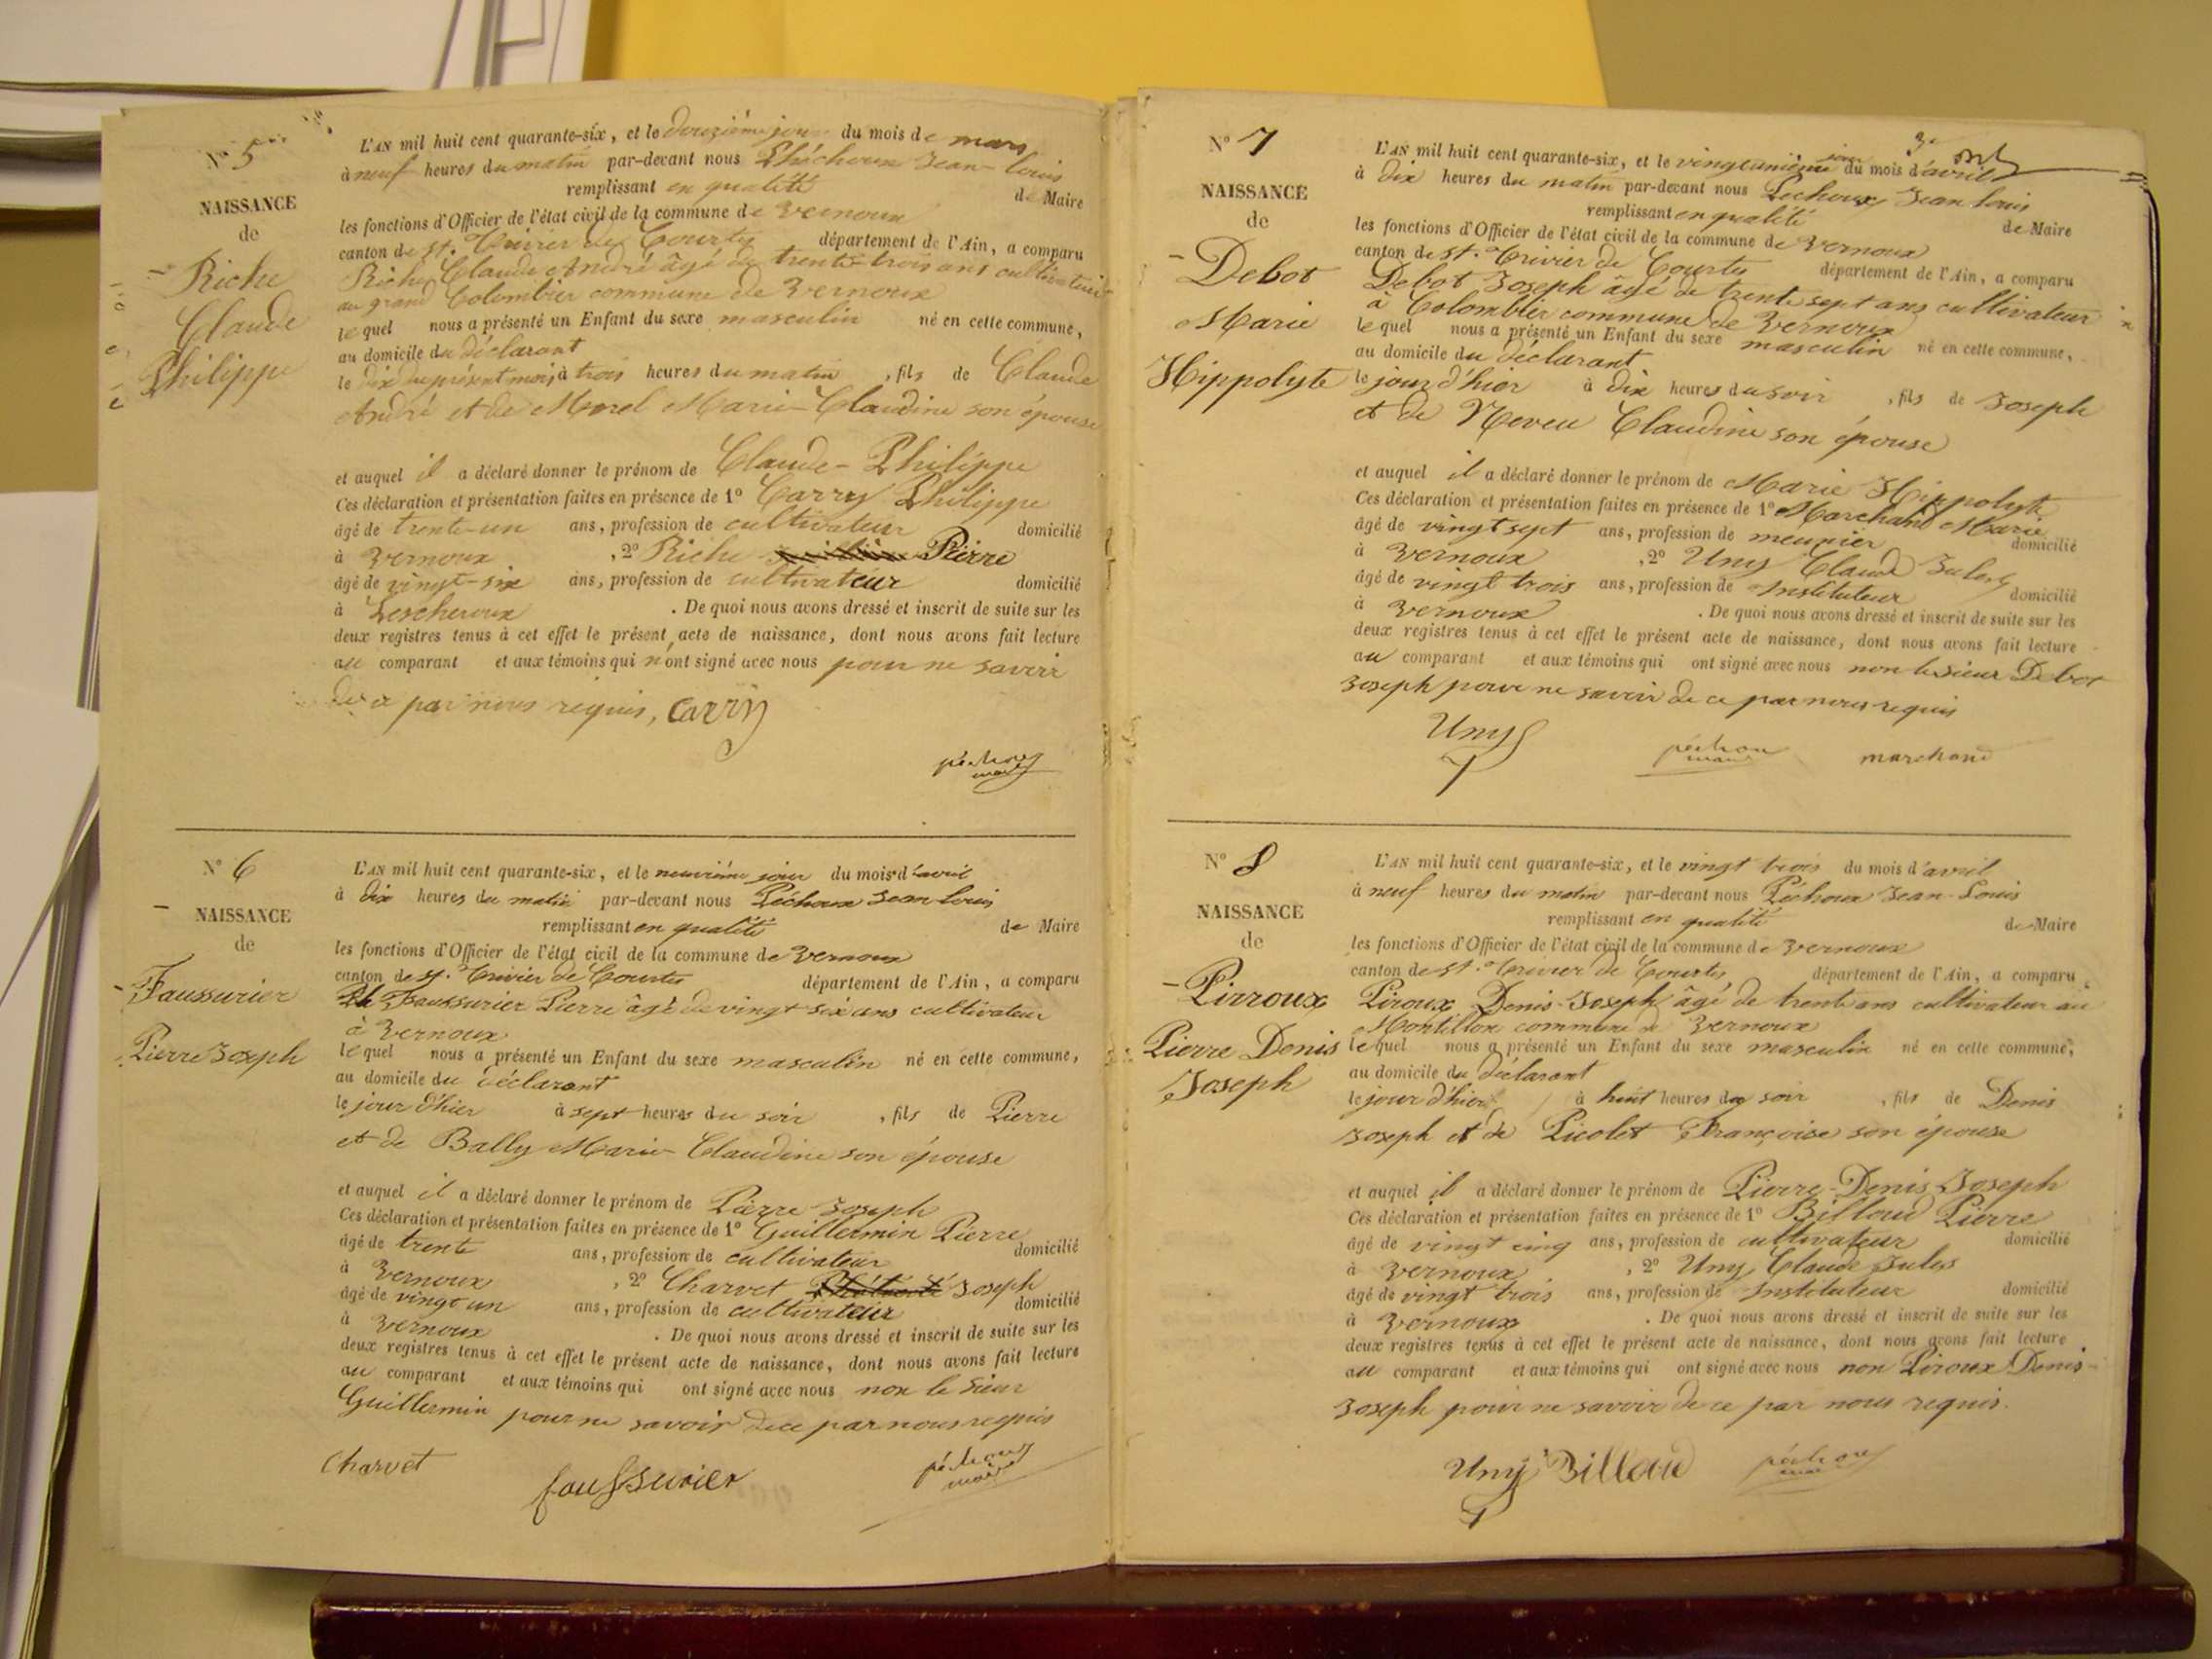 N° 5
NAISSANCE
de
Riche
Claude
Philippe
L'AN mil huit cent quarante-six, et le douzième jour du mois de mars
à neuf heures du matin par-devant nous Péchoux Jean-Louis
remplissant en qualité de Maire
les fonctions d'Officier de l'état civil de la commune de Vernoux
canton de St. Trivier de Courtes département de l'Ain, a comparu
Riche Claude André âgé de trente-trois ans cultivateur
au grand Colombier commune de Vernoux
lequel nous a présenté un Enfant du sexe masculin né en cette commune,
au domicile du déclarant
le dix du présent mois à trois heures du matin, fils de Claude
André et de Morel Marie-Claudine son épouse
et auquel il a déclaré donner le prénom de Claude-Philippe
Ces déclaration et présentation faites en présence de 1° Carry Philippe
âgé de trente-un ans, profession de cultivateur domicilié
à Vernoux, 2° Riche Pierre
âgé de vingt-six ans, profession de cultivateur domicilié
à Lescheroux. De quoi nous avons dressé et inscrit de suite sur les
deux registres tenus à cet effet le présent acte de naissance, dont nous avons fait lecture
au comparant et aux témoins qui n'ont signé avec nous pour ne savoir
de ce par nous requis, Carry
péchoux
maire
N° 6
NAISSANCE
de
Faussurier
Pierre Joseph
L'AN mil huit cent quarante-six, et le neuvième jour du mois d'avril
à dix heures du matin par-devant nous Péchoux Jean Louis
remplissant en qualité de Maire
les fonctions d'Officier de l'état civil de la commune de Vernoux
canton de St. Trivier de Courtes département de l'Ain, a comparu
Faussurier Pierre âgé de vingt six ans cultivateur
à Vernoux
lequel nous a présenté un Enfant du sexe masculin né en cette commune,
au domicile du déclarant
le jour d'hier à sept heures du soir, fils de Pierre
et de Bally Marie-Claudine son épouse
et auquel il a déclaré donner le prénom de Pierre Joseph
Ces déclaration et présentation faites en présence de 1° Guillermin Pierre
âgé de trente ans, profession de cultivateur domicilié
à Vernoux, 2° Charvet Joseph
âgé de vingt un ans, profession de cultivateur domicilié
à Vernoux. De quoi nous avons dressé et inscrit de suite sur les
deux registres tenus à cet effet le présent acte de naissance, dont nous avons fait lecture
au comparant et aux témoins qui ont signé avec nous non le Sieur
Guillermin pour ne savoir de ce par nous requis
Charvet
faussurier
péchoux
maire
N° 7
NAISSANCE
de
Debot
Marie
Hippolyte
L'AN mil huit cent quarante-six, et le vingtunième jour du mois d'avril
à dix heures du matin par-devant nous Péchoux Jean Louis
remplissant en qualité de Maire
les fonctions d'Officier de l'état civil de la commune de Vernoux
canton de St. Trivier de Courtes département de l'Ain, a comparu
Debot Joseph âgé de trente sept ans cultivateur
à Colombier commune de Vernoux
lequel nous a présenté un Enfant du sexe masculin né en cette commune,
au domicile du déclarant
le jour d'hier à dix heures du soir, fils de Joseph
et de Neveu Claudine son épouse
et auquel il a déclaré donner le prénom de Marie Hippolyte
Ces déclaration et présentation faites en présence de 1° Marchand Marie
âgé de vingt sept ans, profession de meunier domicilié
à Vernoux, 2° Uny Claude Jules
âgé de vingt trois ans, profession de Instituteur domicilié
à Vernoux. De quoi nous avons dressé et inscrit de suite sur les
deux registres tenus à cet effet le présent acte de naissance, dont nous avons fait lecture
au comparant et aux témoins qui ont signé avec nous non le sieur Debot
Joseph pour ne savoir de ce par nous requis
Uny
péchoux
maire
marchand
N° 8
NAISSANCE
de
Pirroux
Pierre Denis
Joseph
L'AN mil huit cent quarante-six, et le vingt trois du mois d'avril
à neuf heures du matin par-devant nous Péchoux Jean-Louis
remplissant en qualité de Maire
les fonctions d'Officier de l'état civil de la commune de Vernoux
canton de St. Trivier de Courtes département de l'Ain, a comparu
Piroux Denis-Joseph âgé de trente ans cultivateur au
Montillon commune de Vernoux
lequel nous a présenté un Enfant du sexe masculin né en cette commune,
au domicile du déclarant
le jour d'hier à huit heures du soir, fils de Denis
Joseph et de Picolet Françoise son épouse
et auquel il a déclaré donner le prénom de Pierre-Denis Joseph
Ces déclaration et présentation faites en présence de 1° Billoud Pierre
âgé de vingt cinq ans, profession de cultivateur domicilié
à Vernoux, 2° Uny Claude Jules
âgé de vingt trois ans, profession de Instituteur domicilié
à Vernoux. De quoi nous avons dressé et inscrit de suite sur les
deux registres tenus à cet effet le présent acte de naissance, dont nous avons fait lecture
au comparant et aux témoins qui ont signé avec nous non Piroux Denis-
Joseph pour ne savoir de ce par nous requis.
Uny Billoud
péchoux
maire